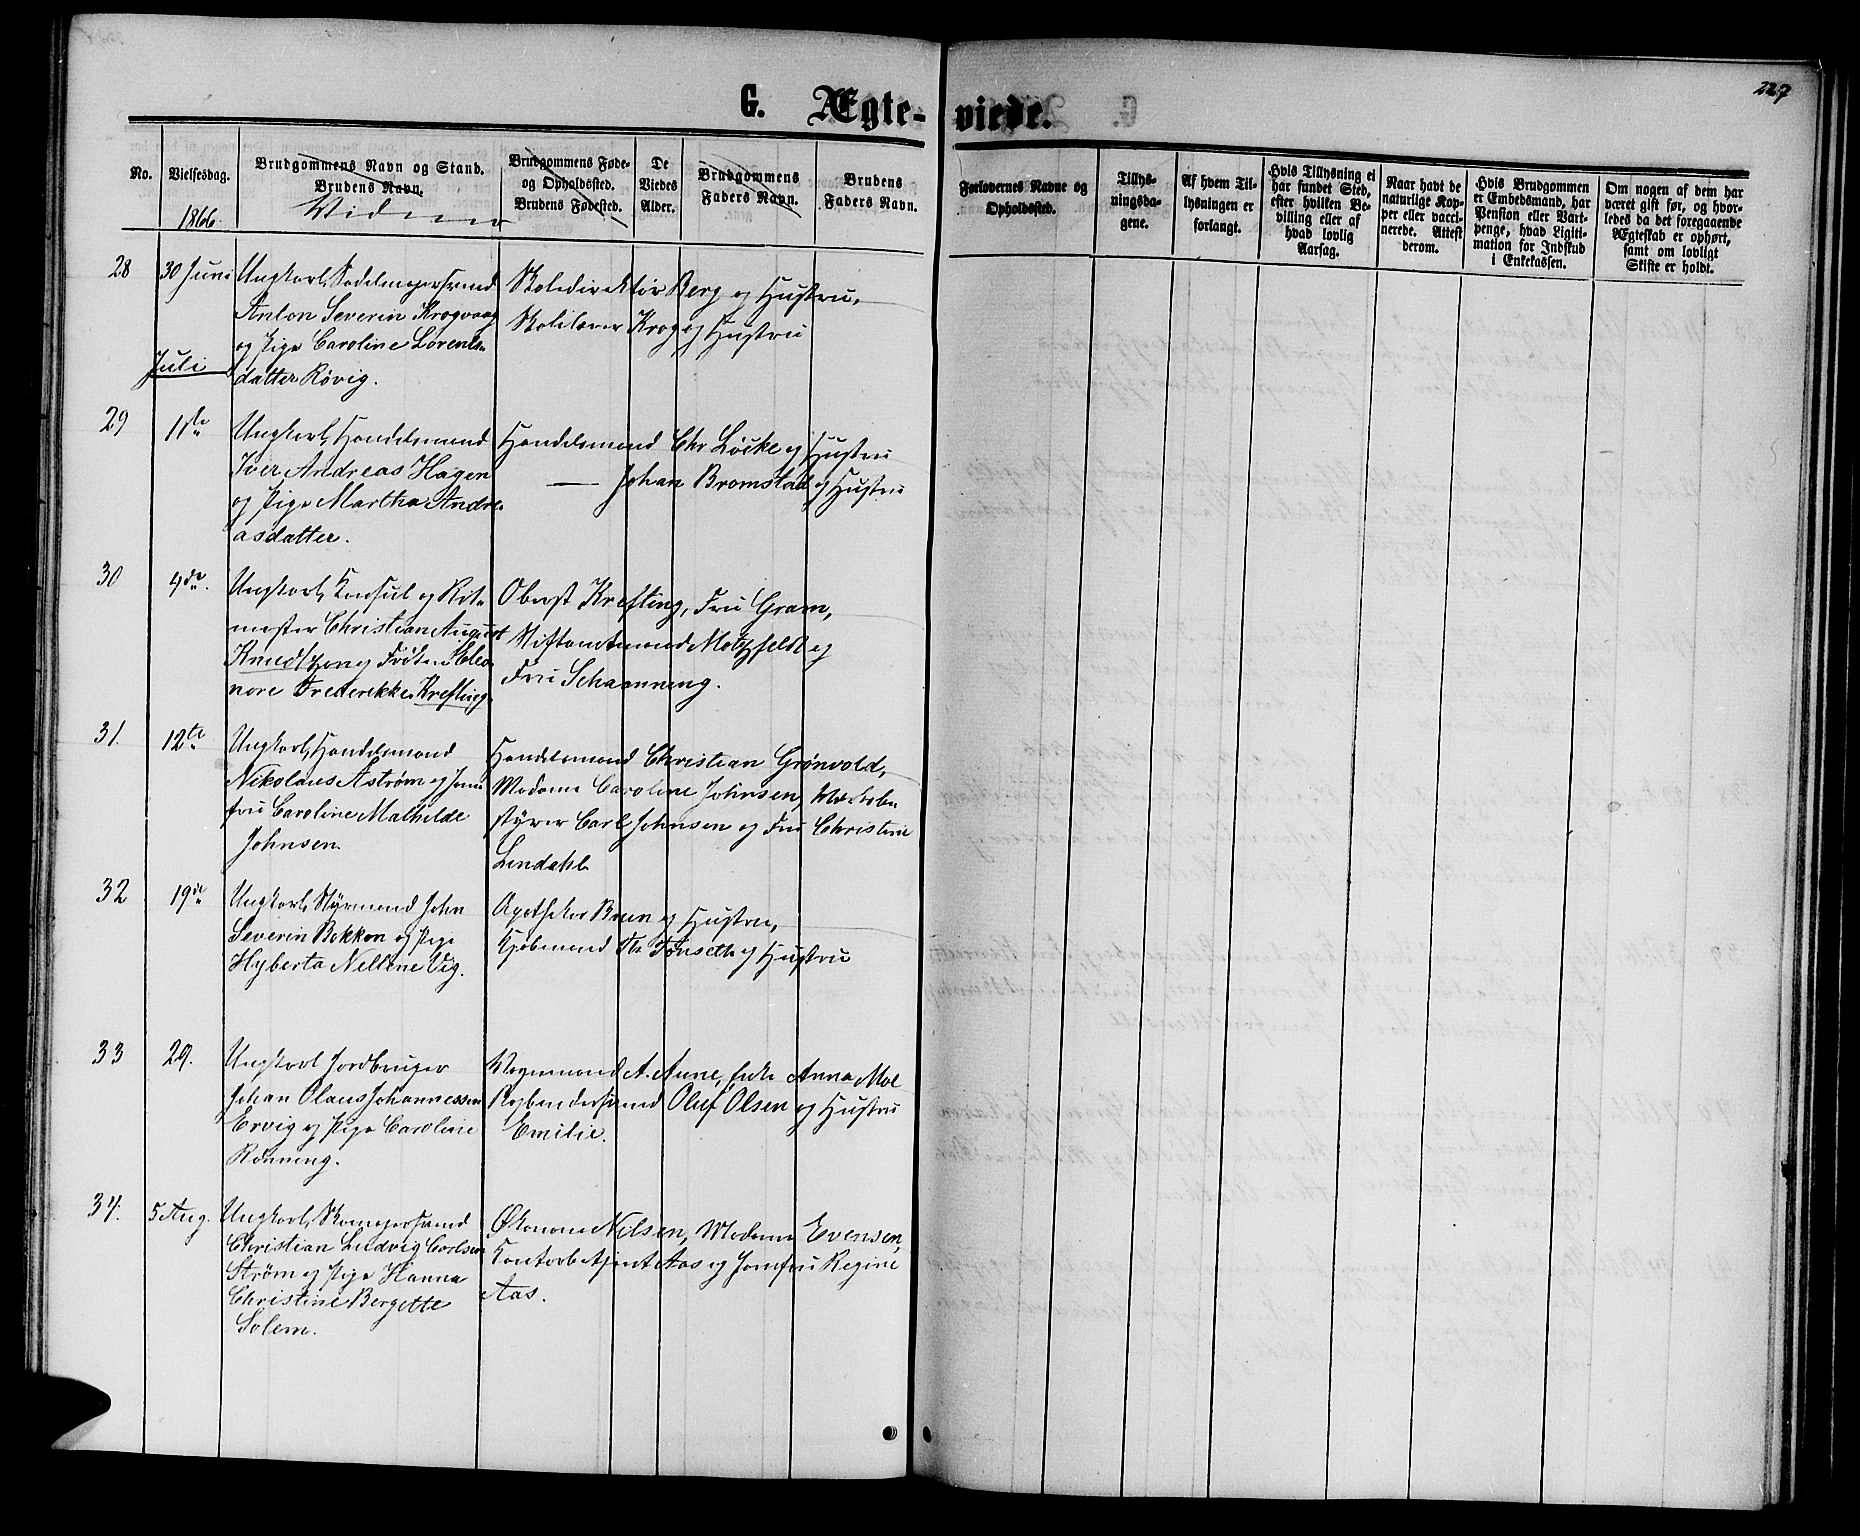 227
G. Ægte-viede.
No.
Vielsesdag.
1866.
Brudgommens Navn og Stand.
Brudens Navn.
Vidner
Brudgommens Føde-
og Opholdssted.
Brudens Fødested.
De
Viedes
Alder.
Brudgommens
Faders Navn.
Brudens
Faders Navn.
Forlovernes Navne og
Opholdssted.
Tillys-
ningsda-
gene.
Af hvem Til-
lysningen er
forlangt.
Hvis Tillysning ei
har fundet Sted,
efter hvilken Be-
villing eller af
hvad lovlig
Aarsag.
Naar havt de
naturlige Kop-
per eller vacci-
nerede. Attest
derom.
Hvis Brudgommen
er Embedsmand, har
Pension eller Vart-
penge, hvad Ligiti-
mation for Indskud
i Enkekassen.
Om nogen af dem har
været gift før, og hvor-
ledes da det foregaaende
Ægteskab er ophørt,
samt om lovligt
Skifte er holdt.
28
30 Juni
Ungkarl, Sadelmagersvend
Anton Severin Krogvaag
og Pige Caroline Lorents-
datter Røvig.
Skoledirektør Berg og Hustru,
Skolelærer Krog og Hustru
Juli
29
1ste
Ungkarl, Handelsmand
Iver Andreas Hagen
og Pige Martha Andre-
asdatter.
Handelsmand Chr Løcke og Hustru
— Johan Bromstad og Hustru
30
4de.
Ungkarl, Konsul og Rit-
mester Christian August
Knudtzon og Frøken Eleo-
nore Frederikke Krefting.
Oberst Krefting, Fru Gram,
Stiftamtmand Motzfeldt og
Fru Schanning.
31.
12te
Ungkarl, Handelsmand
Nikolaus Åstrøm og Jom-
fru Caroline Mathilde
Johnsen.
Handelsmand Christian Grönvold,
Madame Caroline Johnsen, Værksbe-
styrer Carl Johnsen og Fru Christine
Lindahl.
32
19de
Ungkarl, Styrmand John
Severin Bekken og Pige
Hyberta Nelline Vig.
Apotheker Brun og Hustru,
Kjøbmand Th. Tönseth og Hustru
33
29.
Ungkarl Jordbruger
Johan Olaus Johannessen
Ervig og Pige Caroline
Rønning.
Vognmand A. Aune, Enke Anna Moe
Rebendersvend Oluf Olsen og Hustru
Emilie.
34.
5 Aug.
Ungkarl, Skomagersvend
Christian Ludvig Carlsen
Strøm og Pige Hanna
Christine Bergette
Solem.
Økonom Nilsen, Madame Evensen,
Kontorbetjent Aas og Jomfru Regine
Aas.